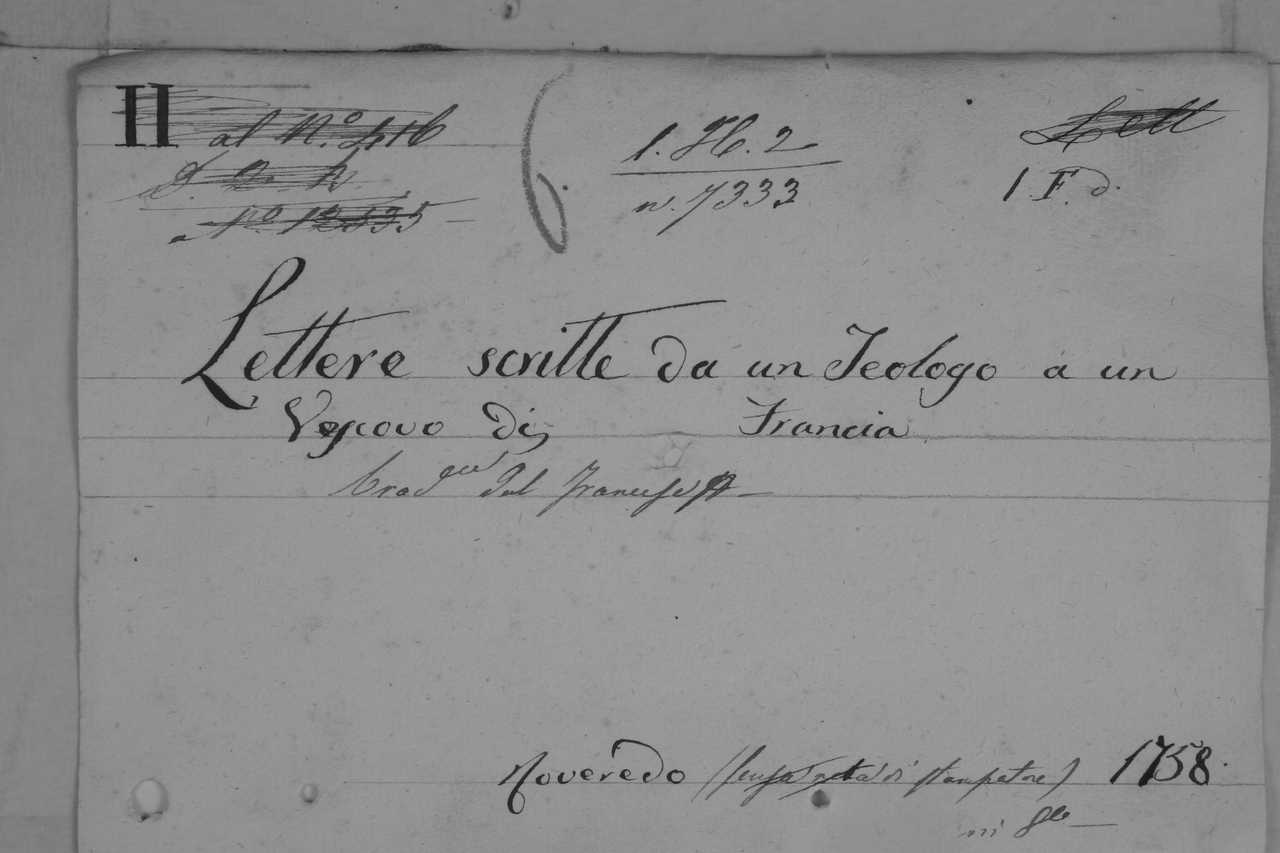 II al N.º 416 1. H. 2 Lett
n. 7333 1. F. d.
Nº. 12535
Lettere scritte da un Teologo a un
Vescovo di Francia
trad dal Francese
Roveredo (senza nota di stampatore) 1758.
in 8º